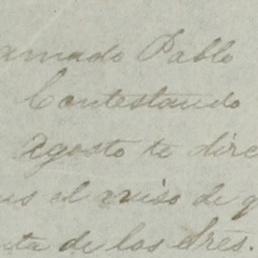 amado Pablo
Contestando
Agosto te dire
us el aviso de q
ta de los Sres.